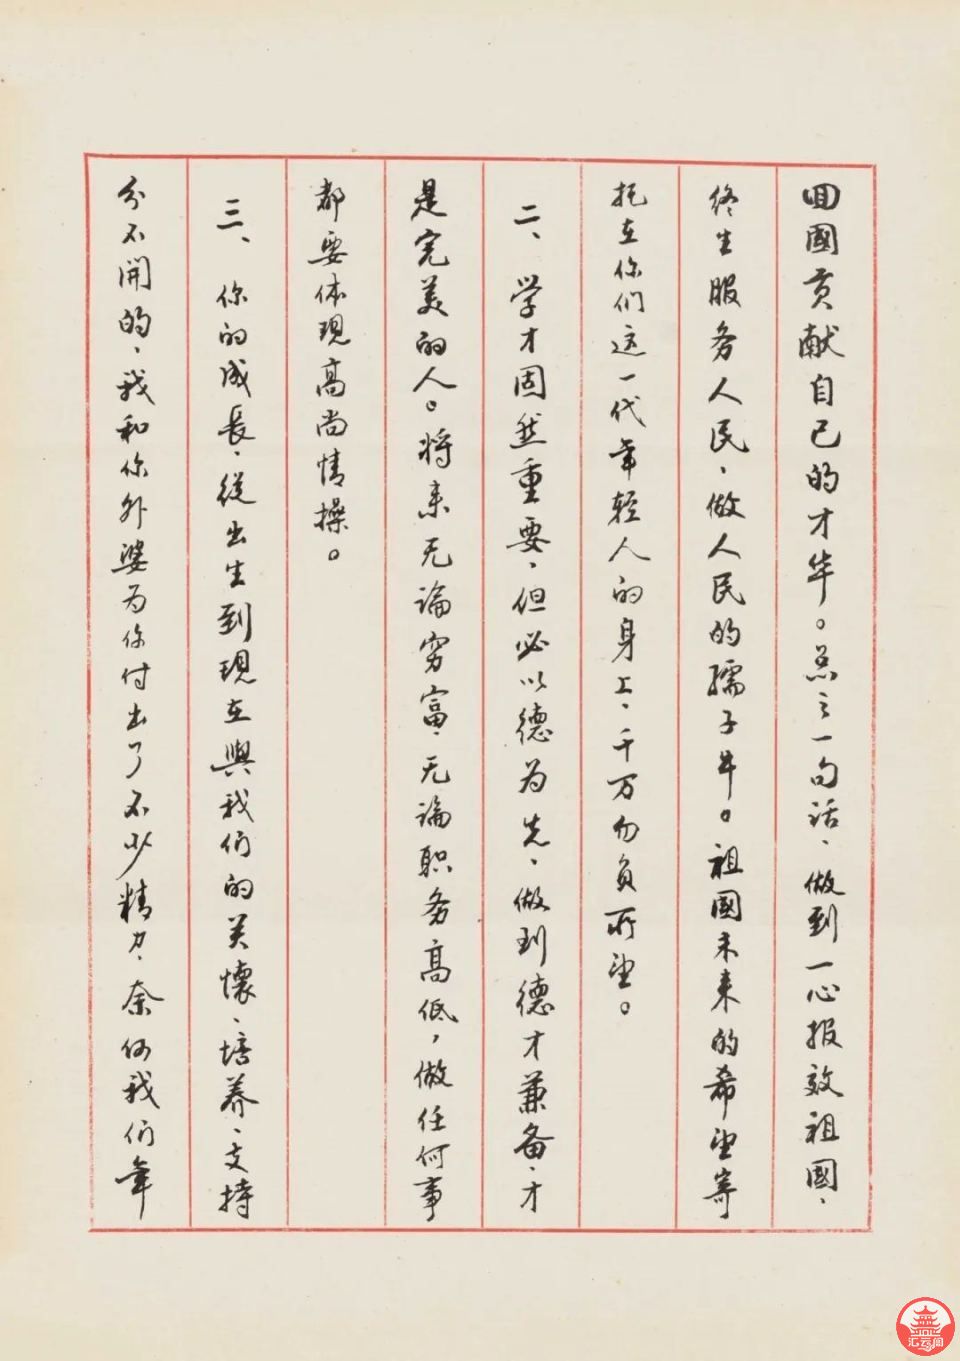 回國貢献自己的才华。总之一句话、做到一心报效祖國、
终生服务人民、做人民的孺子牛。祖國未来的希望寄
托在你们这一代年轻人的身上、千万勿负所望。
二、学才固然重要、但必以德为先、做到德才兼备、才
是完美的人。将来无论穷富、无论职务高低，做任何事
都要体现高尚情操。
三、你的成長、從出生到現在與我们的关懷、培养、支持
分不開的、我和你外婆为你付出了不少精力、奈何我们年
汇云阁